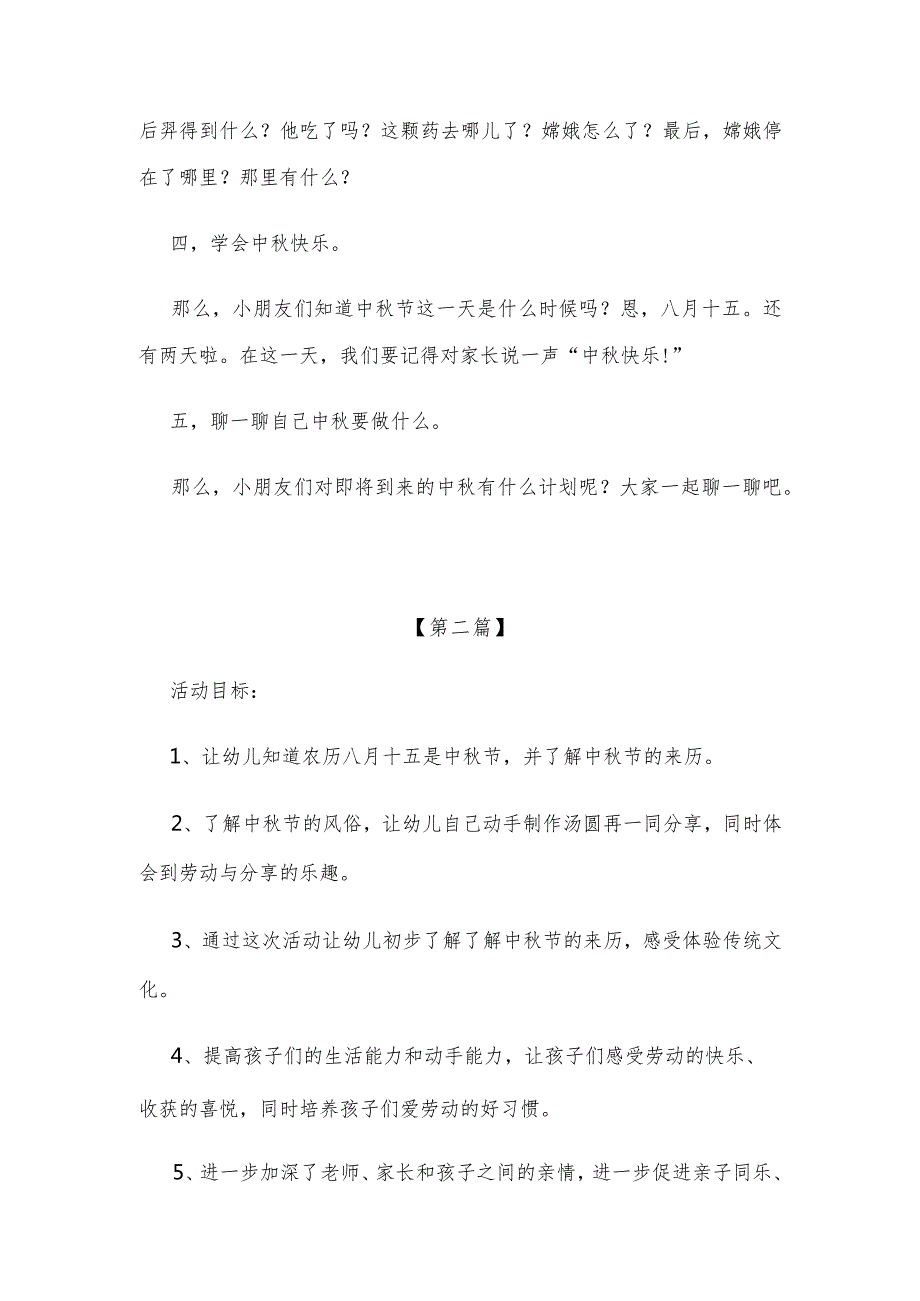 后羿得到什么？他吃了吗？这颗药去哪儿了？嫦娥怎么了？最后，嫦娥停
在了哪里？那里有什么？
四，学会中秋快乐。
那么，小朋友们知道中秋节这一天是什么时候吗？恩，八月十五。还
有两天啦。在这一天，我们要记得对家长说一声“中秋快乐!”
五，聊一聊自己中秋要做什么。
那么，小朋友们对即将到来的中秋有什么计划呢？大家一起聊一聊吧。
【第二篇】
活动目标：
1、让幼儿知道农历八月十五是中秋节，并了解中秋节的来历。
2、了解中秋节的风俗，让幼儿自己动手制作汤圆再一同分享，同时体
会到劳动与分享的乐趣。
3、通过这次活动让幼儿初步了解了解中秋节的来历，感受体验传统文
化。
4、提高孩子们的生活能力和动手能力，让孩子们感受劳动的快乐、
收获的喜悦，同时培养孩子们爱劳动的好习惯。
5、进一步加深了老师、家长和孩子之间的亲情，进一步促进亲子同乐、